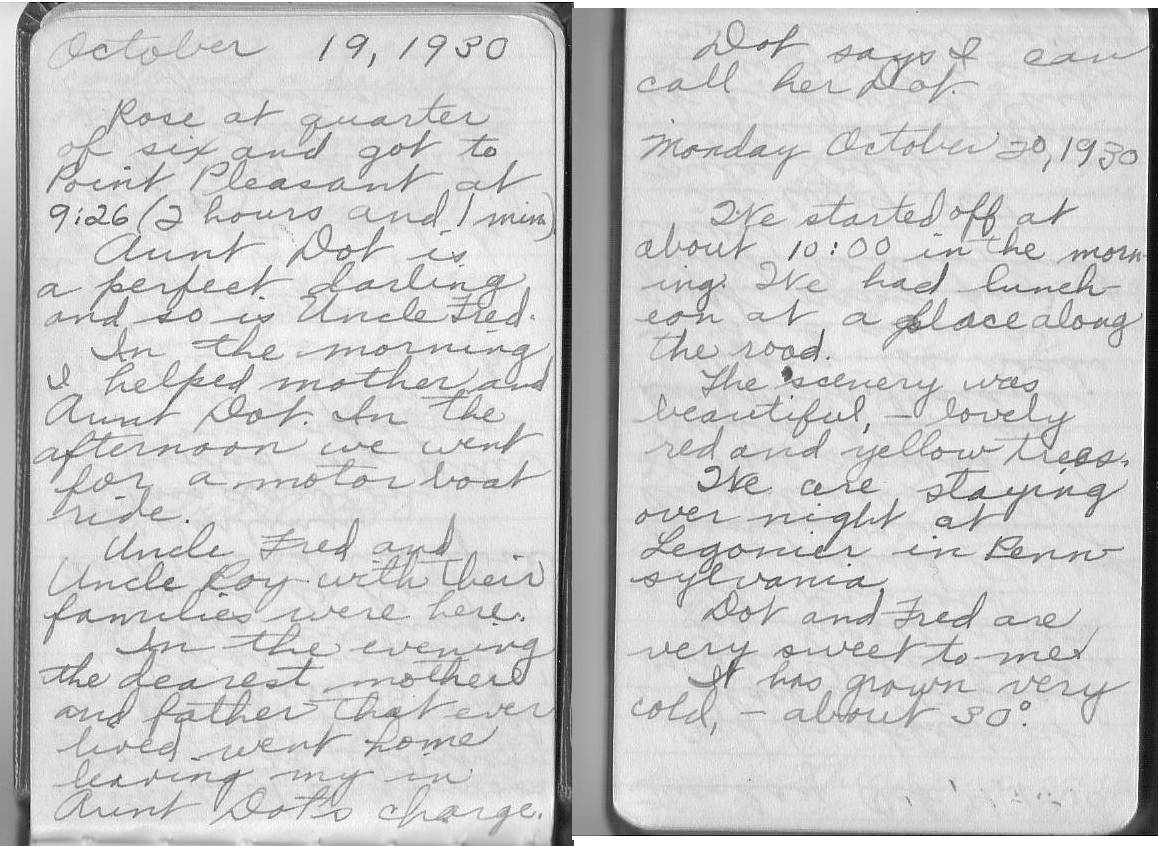 October 19, 1930
Rose at quarter
of six and got to
Point Pleasant at
9:26 (2 hours and 1 min)
Aunt Dot is
a perfect darling
and so is Uncle Fred.
In the morning
I helped mother and
Aunt Dot. In the
afternoon we went
for a motor boat
ride.
Uncle Fred and
Uncle Roy with their
families were here.
In the evening
the dearest mother
and father that ever
lived went home
leaving my in
Aunt Dot's charge.
Dot says I can
call her Dot.
Monday October 20, 1930
We started off at
about 10:00 in the morn-
ing. We had lunch-
eon at a place along
the road.
The scenery was
beautiful, - lovely
red and yellow trees.
We are staying
over night at
Legonier in Penn-
sylvania.
Dot and Fred are
very sweet to me.
It has grown very
cold, - about 30°.